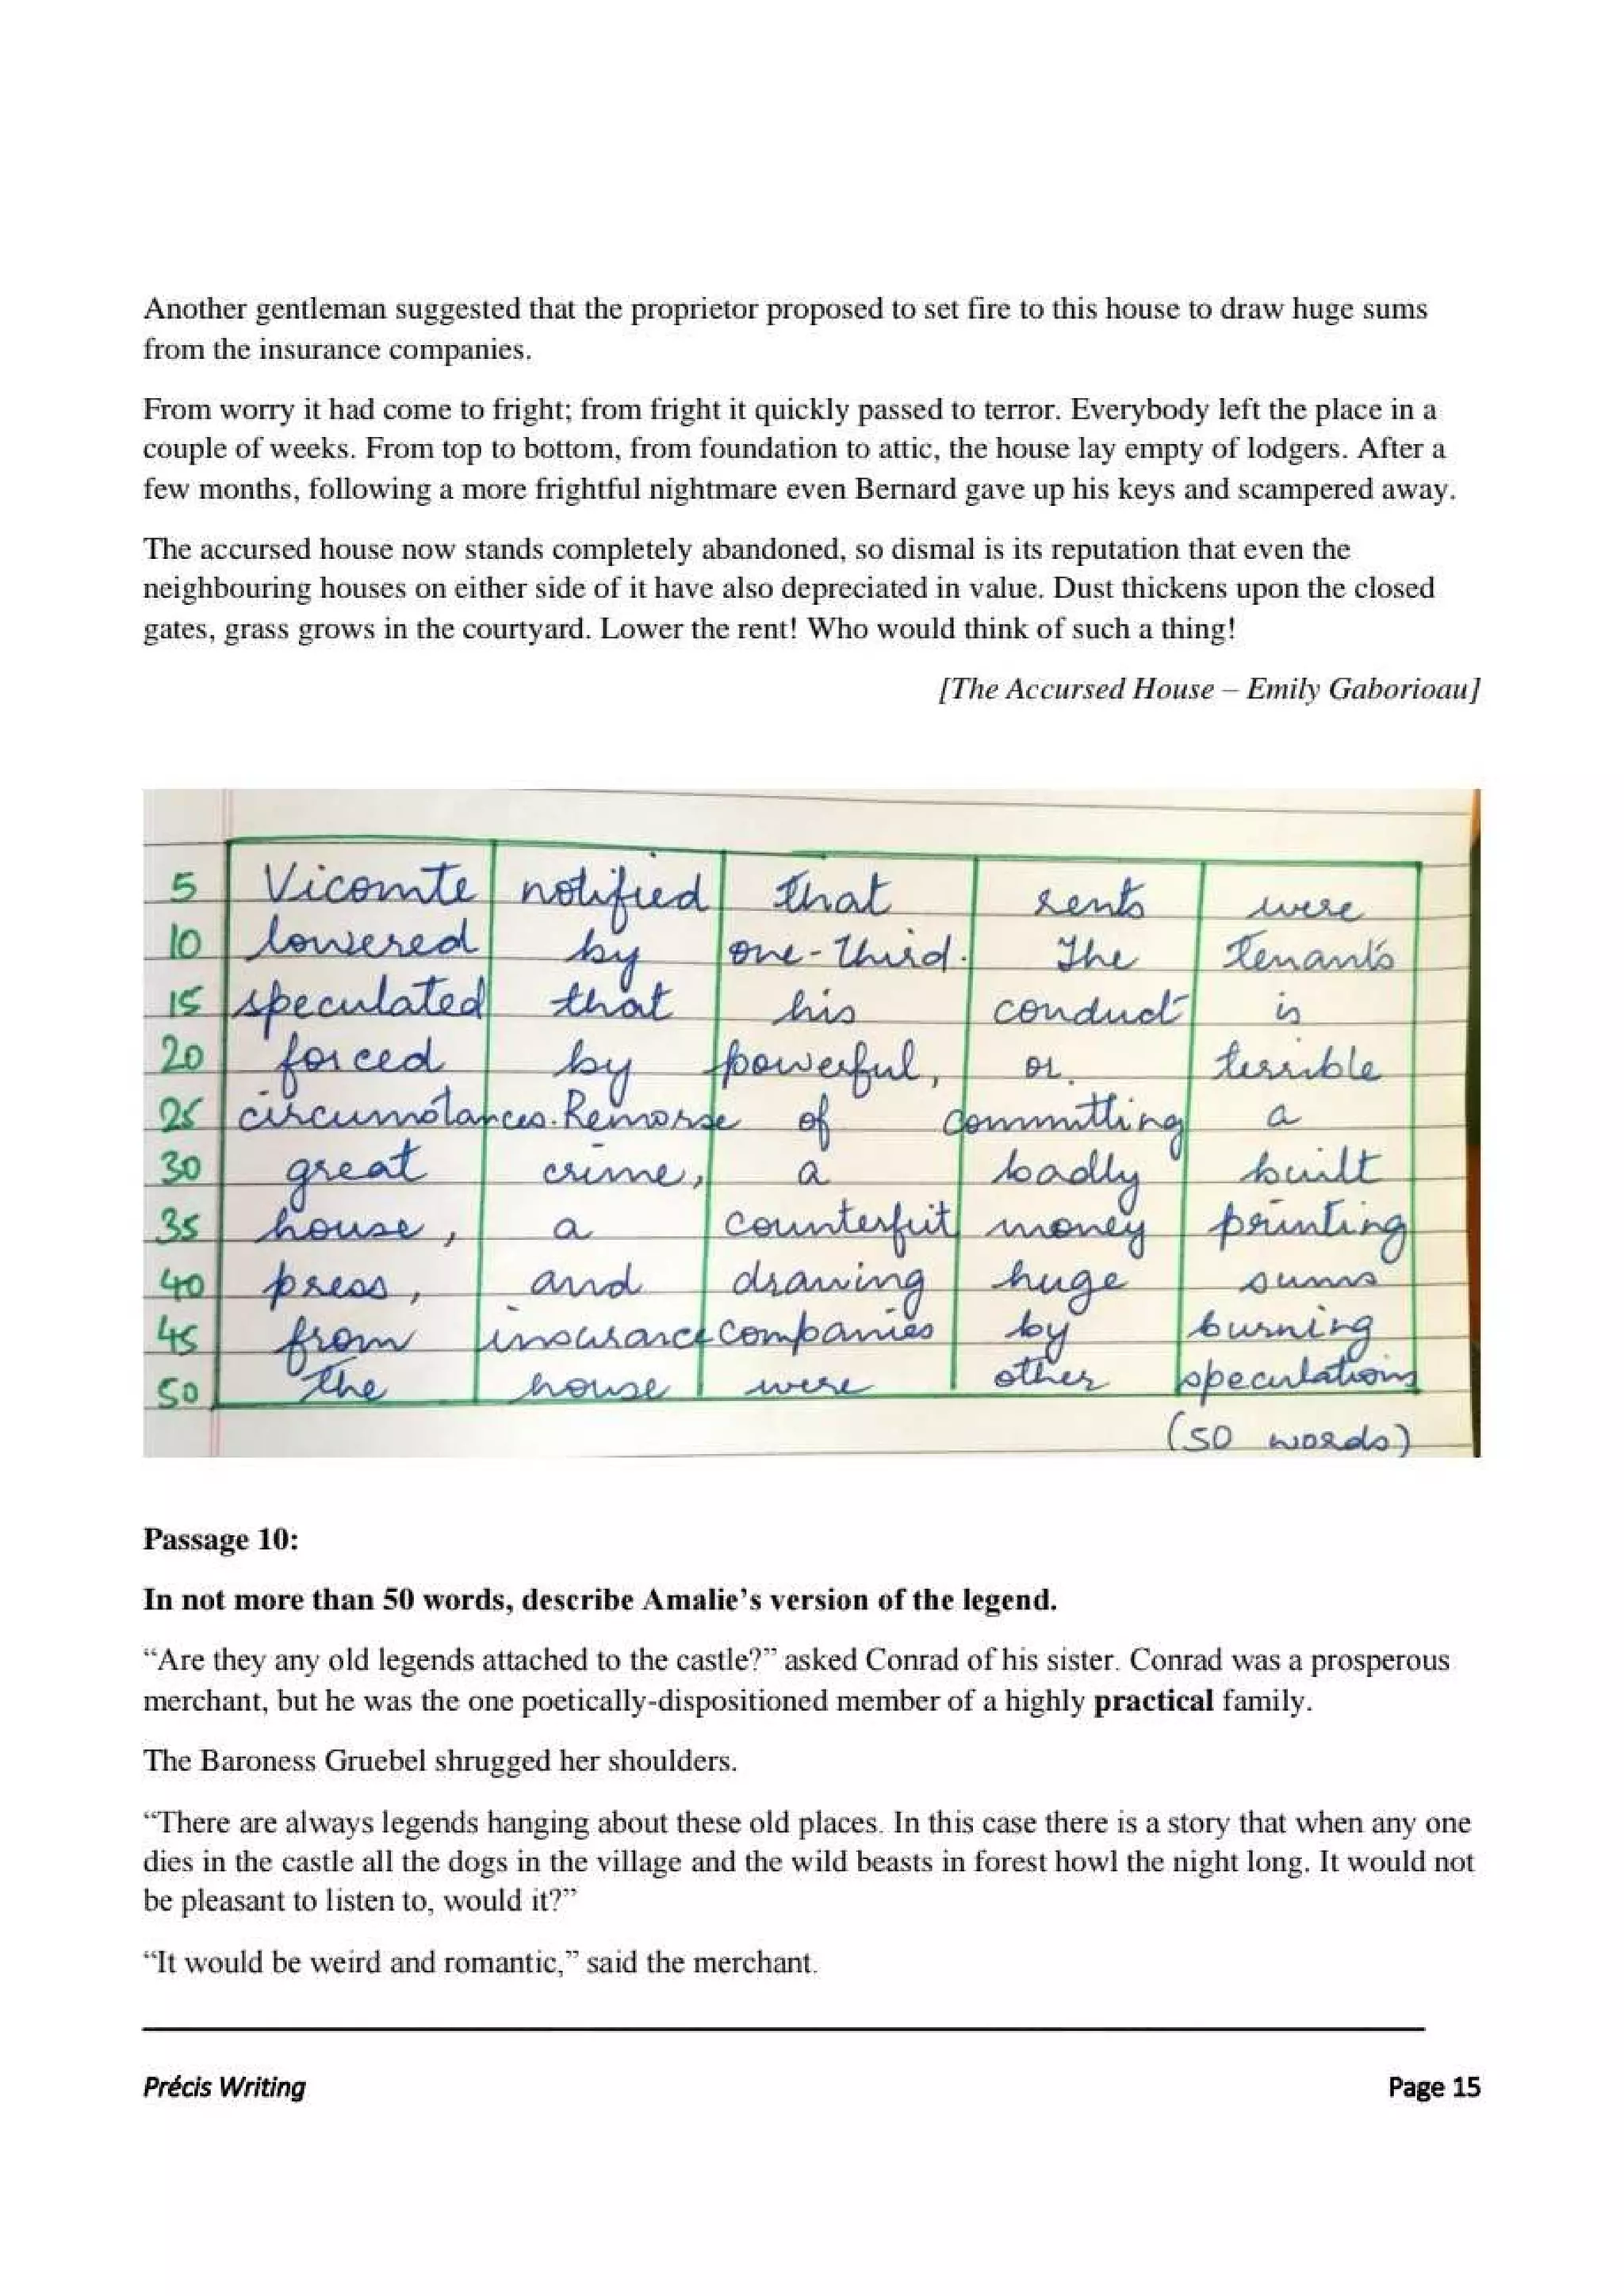 Another gentleman suggested that the proprietor proposed to set fire to this house to draw huge sums
from the insurance companies.
From worry it had come to fright; from fright it quickly passed to terror. Everybody left the place in a
couple of weeks. From top to bottom, from foundation to attic, the house lay empty of lodgers. After a
few months, following a more frightful nightmare even Bernard gave up his keys and scampered away.
The accursed house now stands completely abandoned, so dismal is its reputation that even the
neighbouring houses on either side of it have also depreciated in value. Dust thickens upon the closed
gates, grass grows in the courtyard. Lower the rent! Who would think of such a thing!
[The Accursed House – Emily Gaborioau]
5 Vicomte notified that rents were
10 lowered by one-third. The tenants
15 speculated that his conduct is
20 forced by powerful, or terrible
25 circumstances. Remorse of committing a
30 great crime, a badly built
35 house, a counterfeit money printing
40 press, and drawing huge sums
45 from insurance companies by burning
50 the house were other speculations
(50 words)
Passage 10:
In not more than 50 words, describe Amalie’s version of the legend.
“Are they any old legends attached to the castle?” asked Conrad of his sister. Conrad was a prosperous
merchant, but he was the one poetically-dispositioned member of a highly practical family.
The Baroness Gruebel shrugged her shoulders.
“There are always legends hanging about these old places. In this case there is a story that when any one
dies in the castle all the dogs in the village and the wild beasts in forest howl the night long. It would not
be pleasant to listen to, would it?”
“It would be weird and romantic,” said the merchant.
Précis Writing Page 15